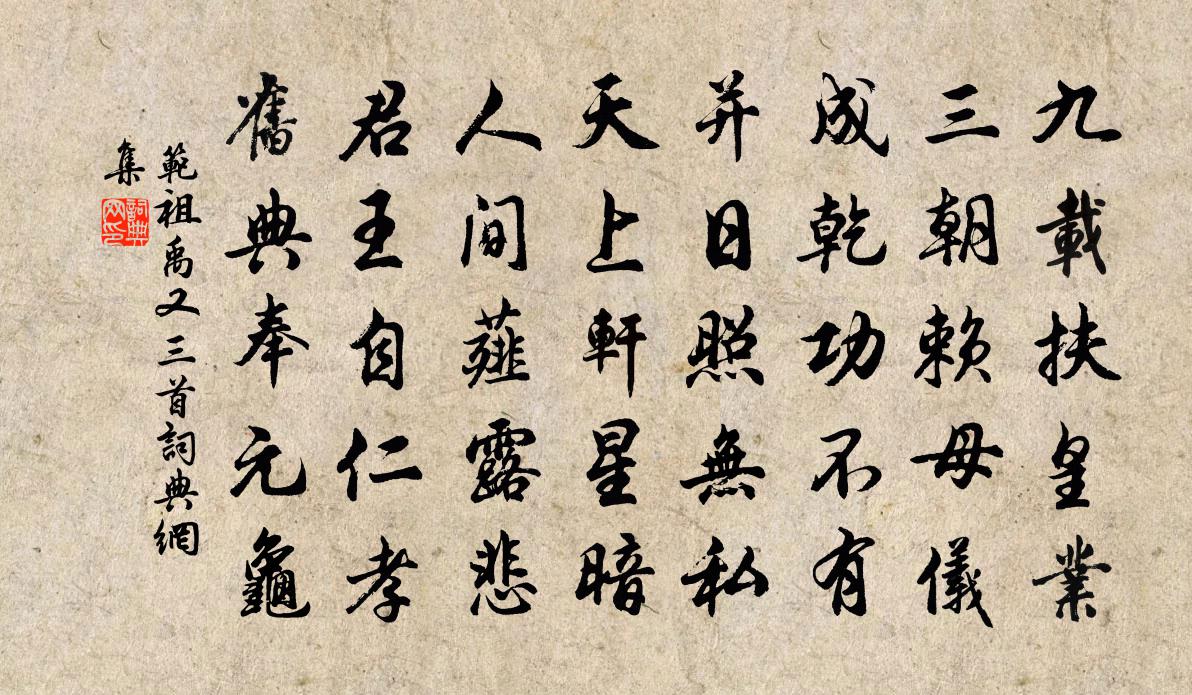 九載扶皇業
三朝賴母儀
成乾功不有
并日照無私
天上軒星暗
人間薤露悲
君王自仁孝
舊典奉元龜
範祖禹又三首詞典網
集
詞典
网印